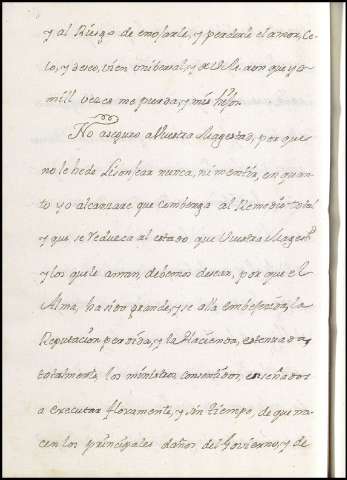 y al Riesgo de enojarle, y perderle el amor, Ce-
lo, y deseo, vien universal, y de Vile. aon que yo
mill vezes me pierda, y mis hijos.
No aseguro a Vuestra Magestad, por que
no le hede Lisonjear nunca, ni mentir, en quan-
to yo alcanzare que combenga al Remedio total
y que se reduzca al estado que Vuestra Magestd
y los que le aman, debemos desear, por que el
Alma, ha sido grande, y se alla embejecida, la
Reputacion perdida, y la Hacienda, estenuada
totalmente, los ministros consentidos, enseñados
a executar floxamente, y sin tiempo, de que na-
cen los principales daños del Govierno, y de